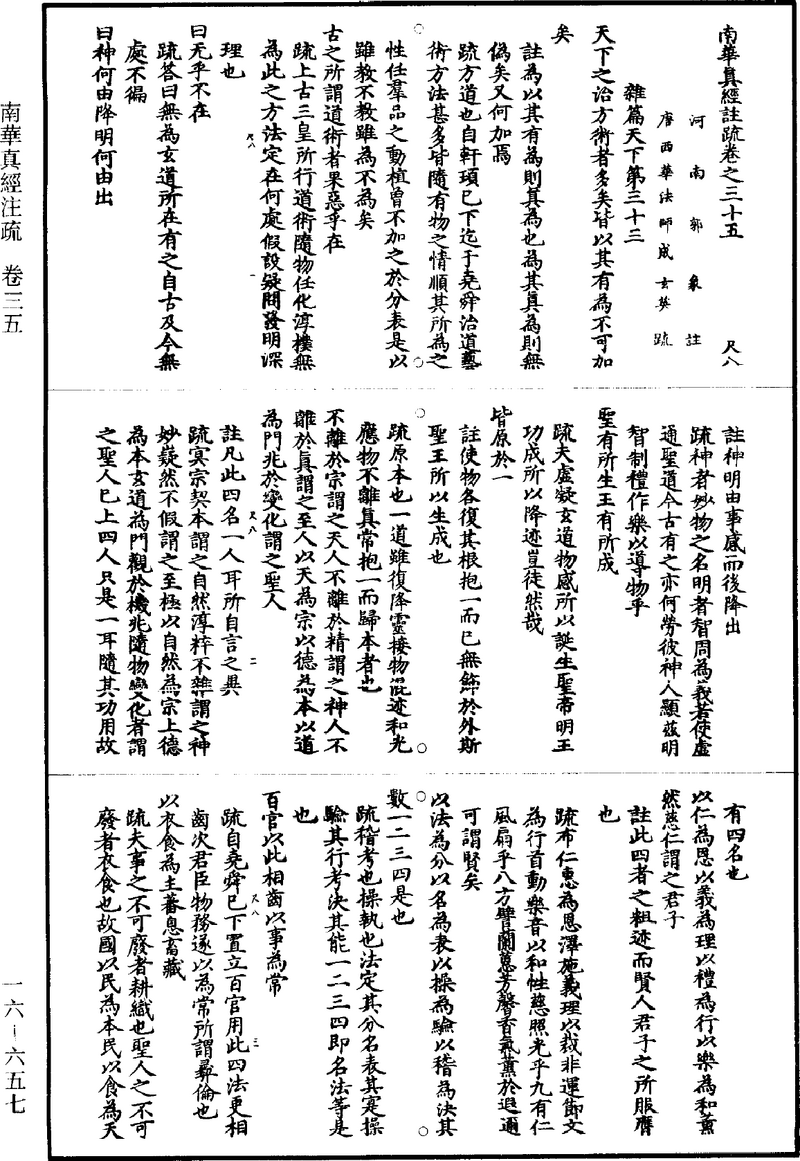 南華真經註疏卷之三十五　尺八
河南郭象註
唐西華法師成玄英疏
雜篇天下第三十三
天下之治方術者多矣皆以其有為不可加
矣
註為以其有為則真為也為其真為則無
偽矣又何加焉
疏方道也自軒頊已下迄于堯舜治道藝
術方法甚多皆隨有物之情順其所為之
性任羣品之動植曾不加之於分表是以
雖教不教雖為不為矣
古之所謂道術者果惡乎在
疏上古三皇所行道術隨物任化淳樸無
為此之方法定在何處假設疑問發明深
理也
曰无乎不在
疏答曰無為玄道所在有之自古及今無
處不徧
曰神何由降明何由出
註神明由事感而後降出
疏神者妙物之名明者智周為義若使虛
通聖道今古有之亦何勞彼神人顯茲明
智制禮作樂以導物乎
聖有所生王有所成
疏夫虛凝玄道物感所以誕生聖帝明王
功成所以降迹豈徒然哉
皆原於一
註使物各復其根抱一而已無飾於外斯
聖王所以生成也
疏原本也一道雖復降靈接物混迹和光
應物不離真常抱一而歸本者也
不離於宗謂之天人不離於精謂之神人不
離於真謂之至人以天為宗以德為本以道
為門兆於變化謂之聖人
註凡此四名一人耳所自言之異
疏冥宗契本謂之自然淳粹不雜謂之神
妙嶷然不假謂之至極以自然為宗上德
為本玄道為門觀於機兆隨物變化者謂
之聖人已上四人只是一耳隨其功用故
有四名也
以仁為恩以義為理以禮為行以樂為和薰
然慈仁謂之君子
註此四者之粗迹而賢人君子之所服膺
也
疏布仁惠為恩澤施義理以裁非運節文
為行首動樂音以和性慈照光乎九有仁
風扇乎八方譬蘭蕙芳馨香氣薰於遐邇
可謂賢矣
以法為分以名為表以操為驗以稽為決其
數一二三四是也
疏稽考也操執也法定其分名表其寔操
驗其行考決其能一二三四即名法等是
也
百官以此相齒以事為常
疏自堯舜已下置立百官用此四法更相
齒次君臣物務遂以為常所謂彝倫也
以衣食為主蕃息畜藏
疏夫事之不可廢者耕織也聖人之不可
廢者衣食也故國以民為本民以食為天
尺八　一
尺八　二
尺八　三
南華真經注疏　卷三五
一六－六五七